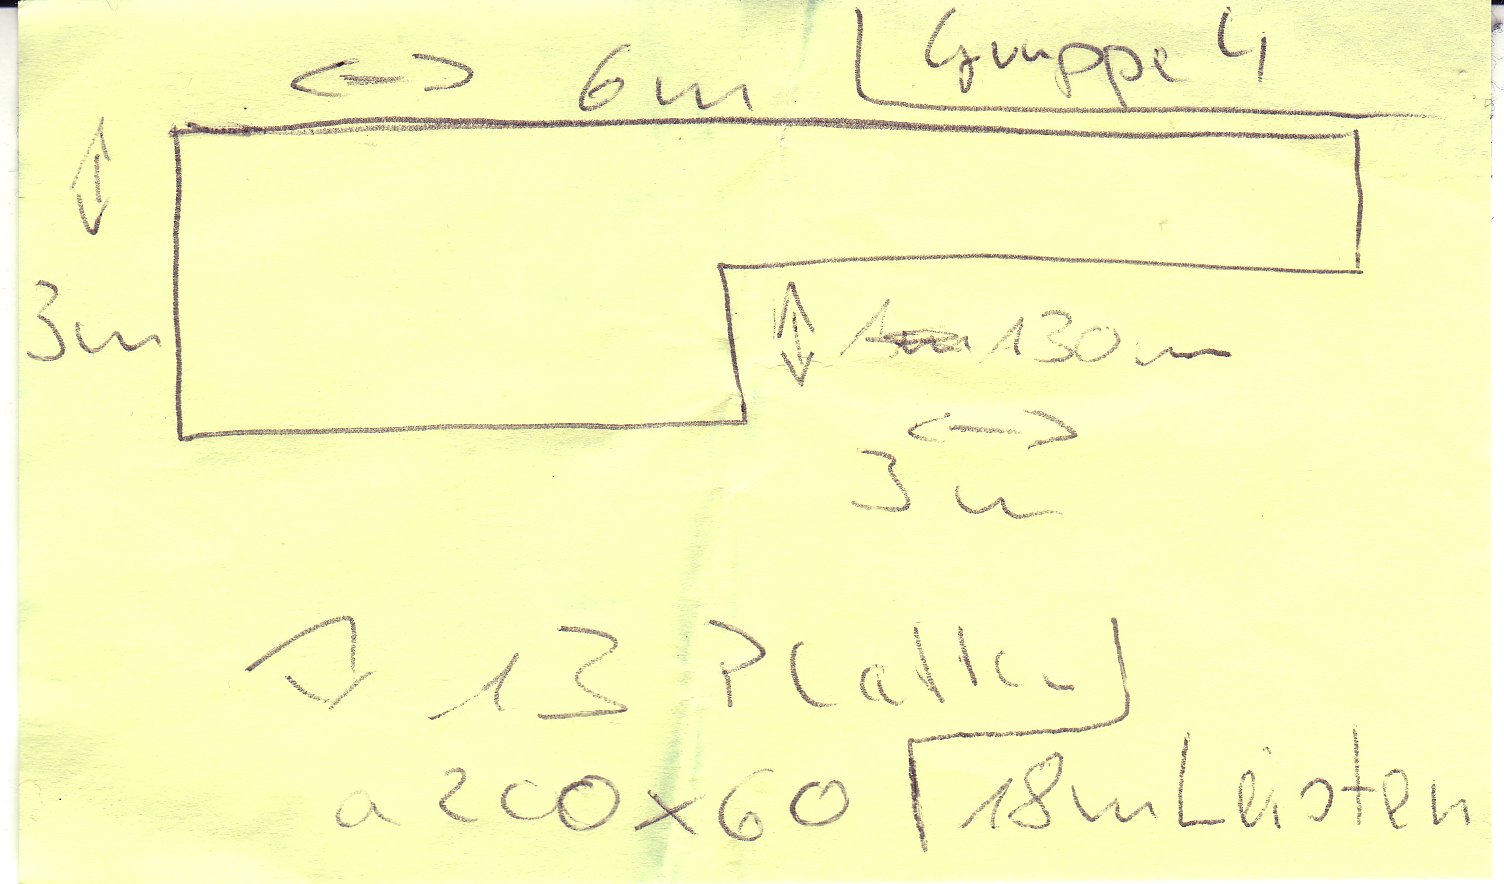 Gruppe 4
6m
3m
130m
3m
13 Platten
a 200x60
18m Leisten